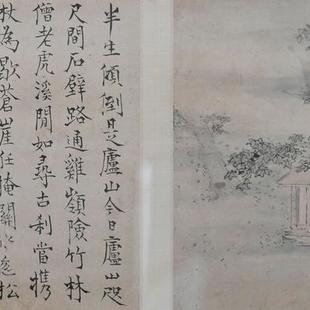 半生傾倒是廬山今日廬山咫
尺間石壁路通雞嶺險竹林
僧老虎溪閒如尋古刹當携
杖為歇蒼崖任掩關
松